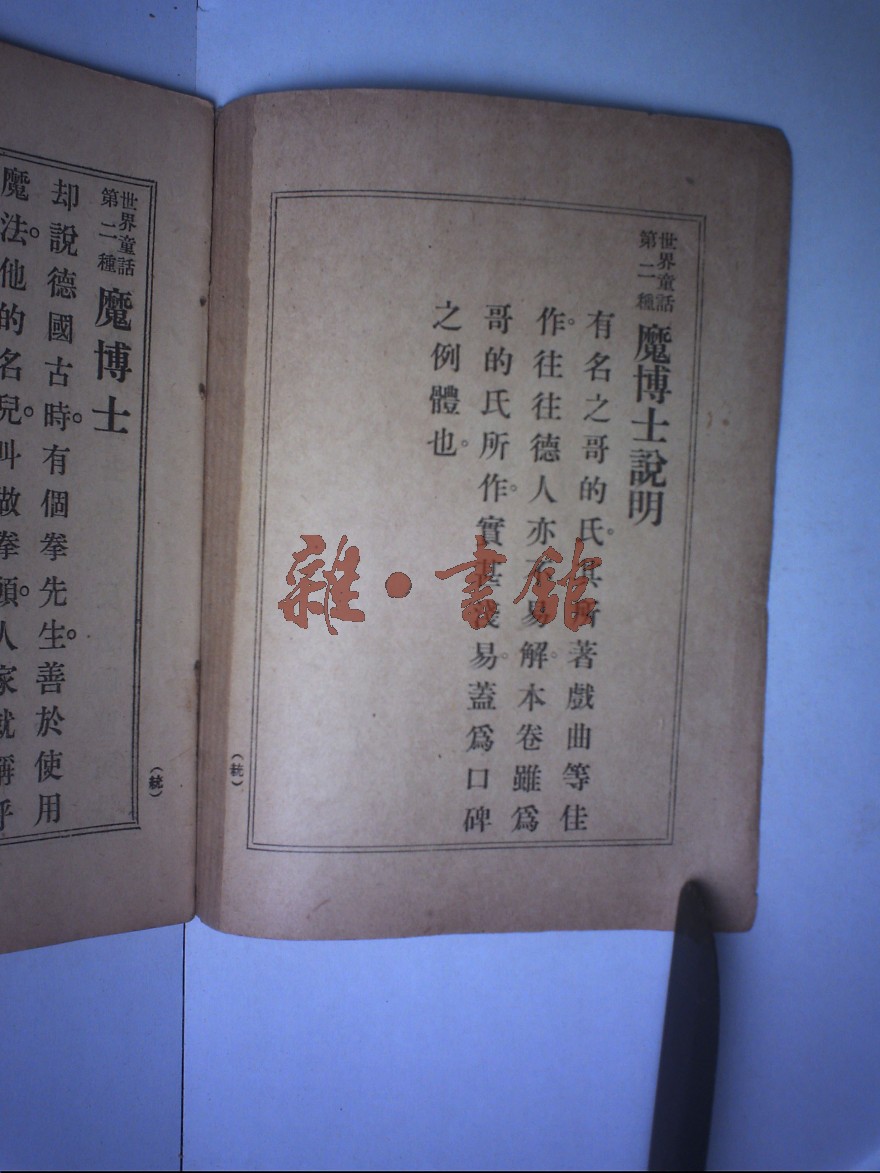 世界童話
第二種
魔博士說明
有名之哥的氏。其所著戲曲等佳
作。往往德人亦不易解。本卷雖爲
哥的氏所作。實甚淺易。蓋爲口碑
之例體也。
(統)
世界童話
第二種
魔博士
却說德國古時。有個拳先生。善於使用
魔法。他的名兒。叫做拳頭。人家就稱乎
(統)
雜·書館